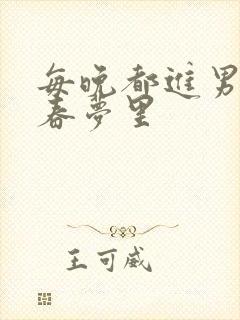 每晚都进男
春梦里
王可威